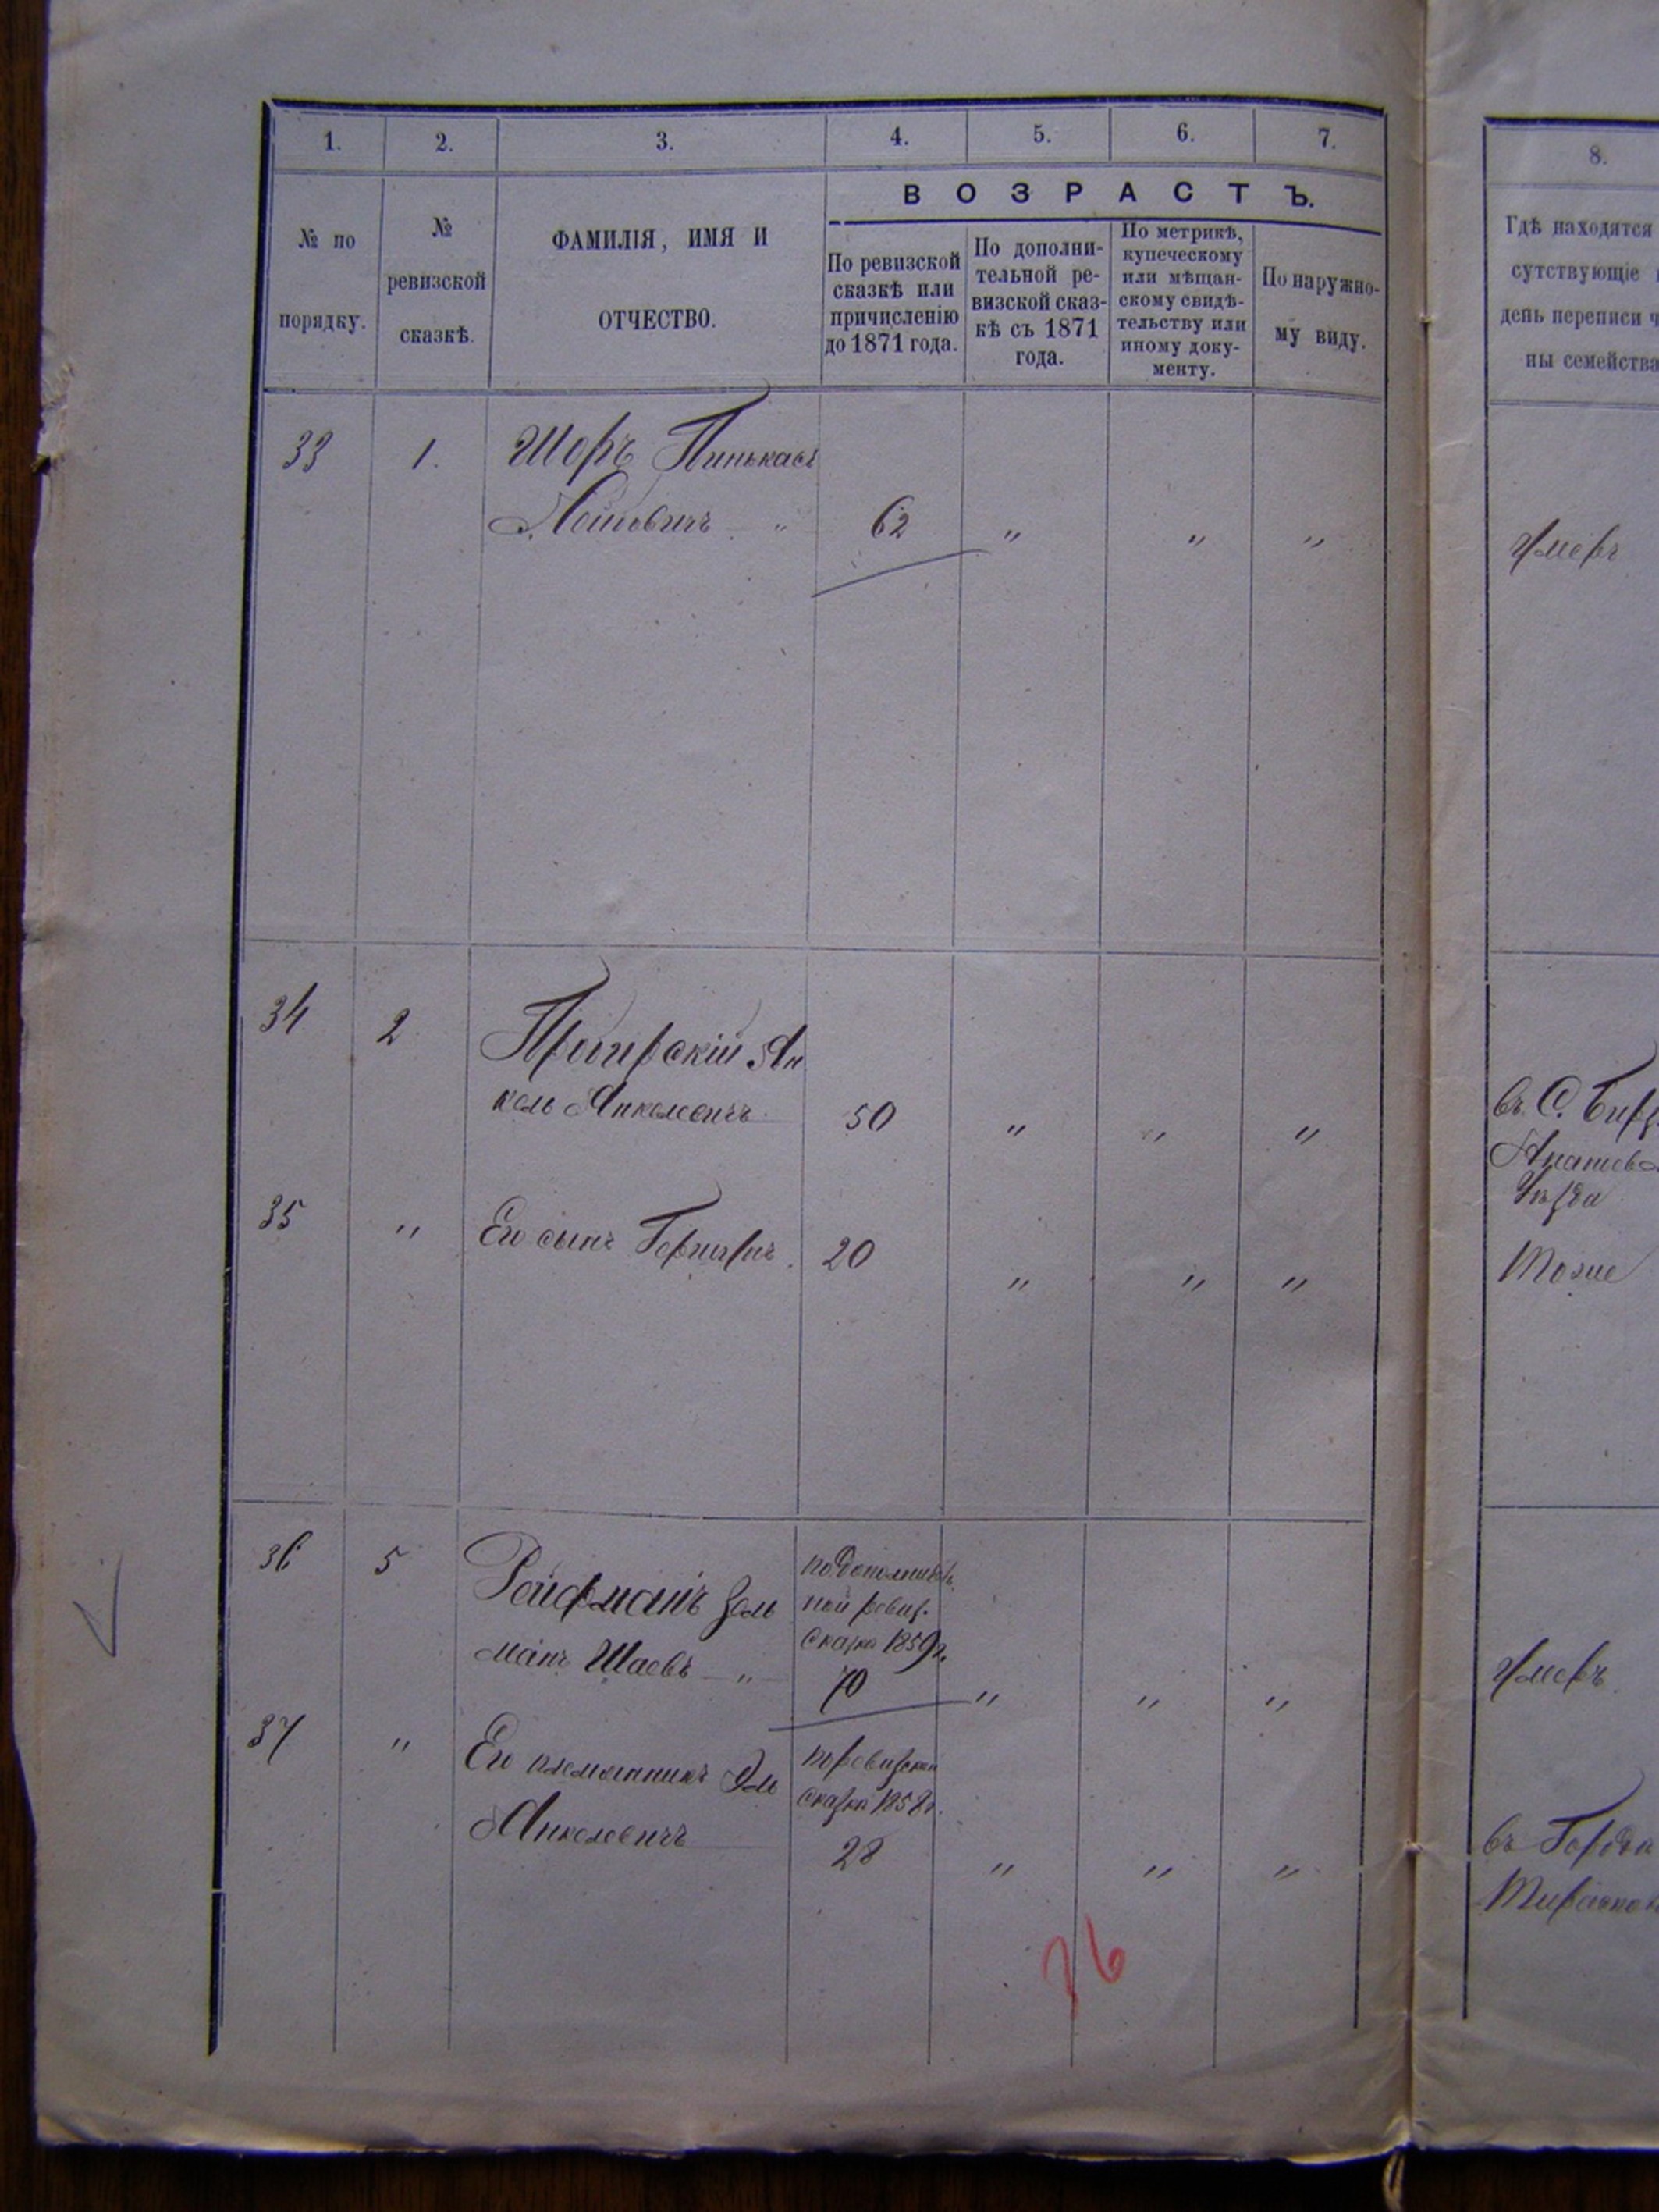 1. 2. 3. 4. 5. 6. 7.
ВОЗРАСТЪ.
№ по
порядку.
№
ревизской
сказкѣ.
ФАМИЛІЯ, ИМЯ И
ОТЧЕСТВО.
По ревизской
сказкѣ или
причисленію
до 1871 года.
По дополни-
тельной ре-
визской сказ-
кѣ съ 1871
года.
По метрикѣ,
купеческому
или мѣщан-
скому свидѣ-
тельству или
иному доку-
менту.
По наружно-
му виду.
33 1. Шоръ Пинькасъ
" 62 " " "
34 2
Янкелевичъ 50 " " "
35 " Его сынъ 20 " " "
36 5 Рейфманъ Зель
манъ Шаевъ "
ной ревиз.
сказкѣ 1859г.
70 " " "
37 " Его племянникъ
Янкелевичъ
по ревизской
сказкѣ 1858г.
28 " " "
26
8.
Гдѣ находятся
сутствующіе
день переписи ч
ны семейства
Умеръ
въ С.
Уѣзда
Тоже
Умеръ
въ Городѣ